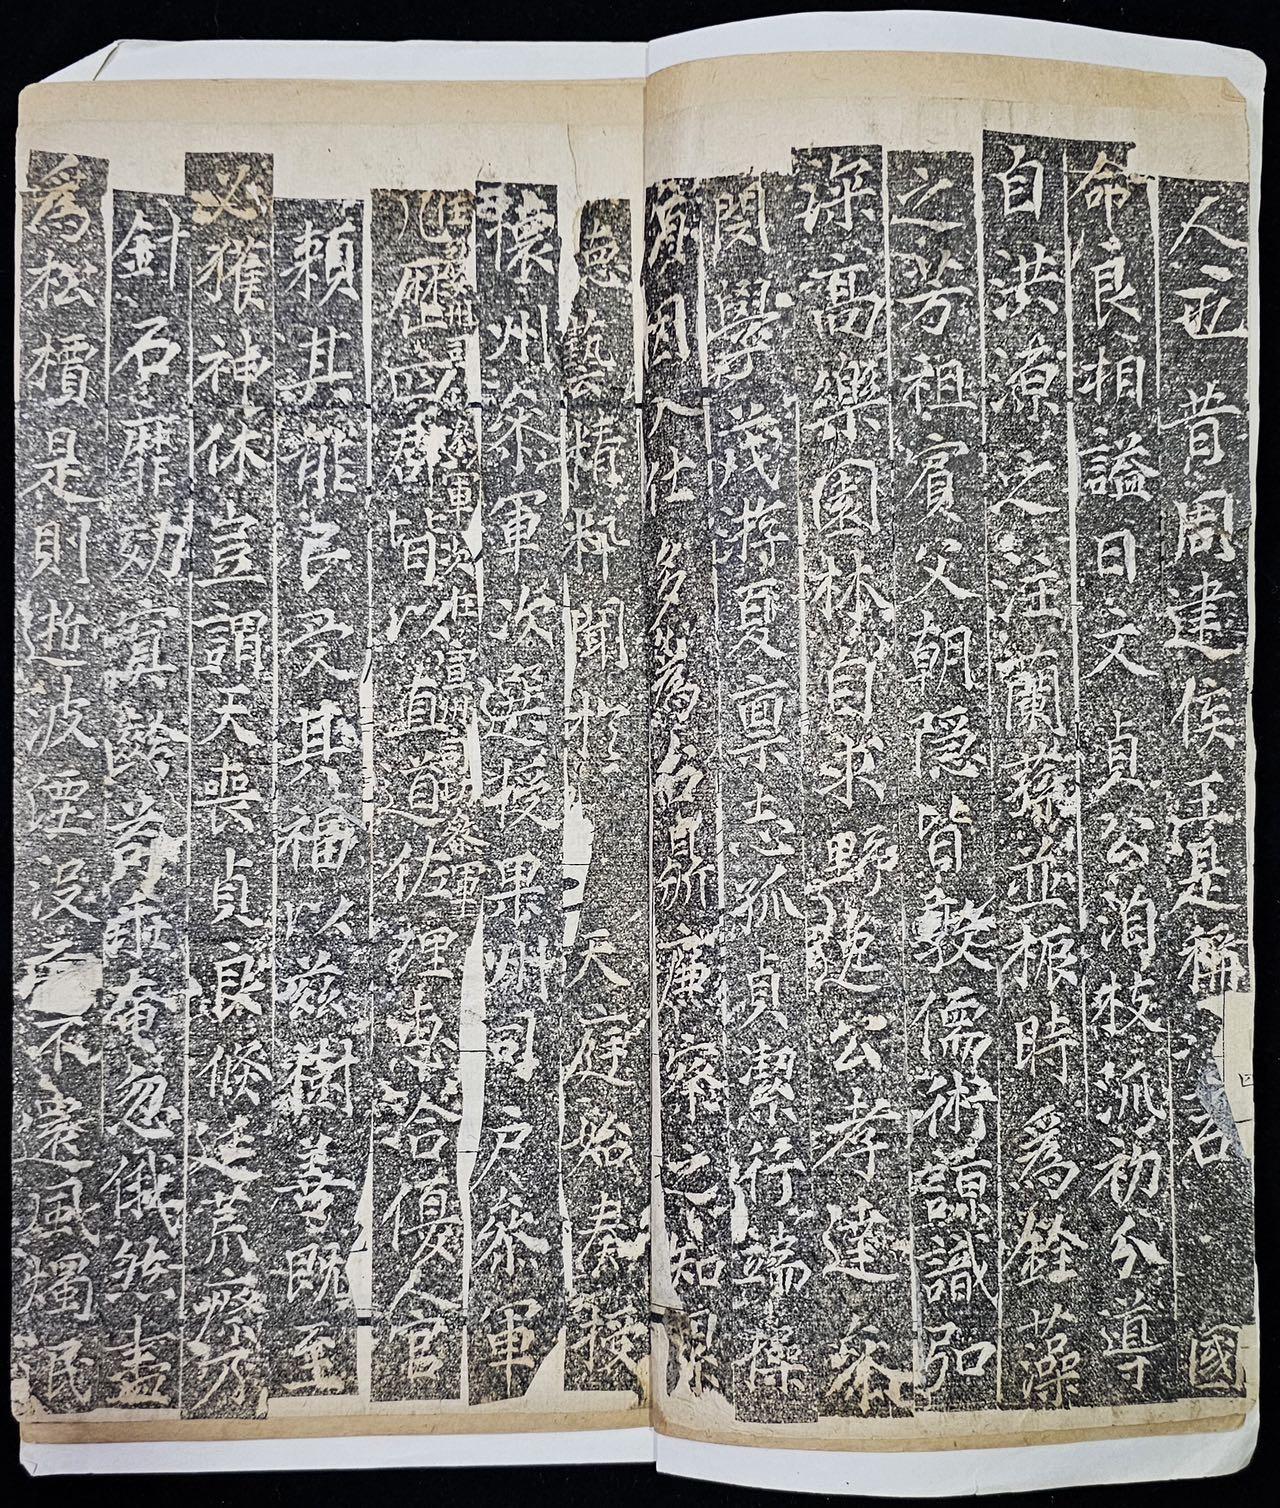 人也昔周建侯王是稱
君國
命良相謚曰文貞公洎枝派初分導
自洪源之注蘭蓀並振時為銓藻
之芳祖賓父朝隱皆敦儒術諒識弘
深高樂園林自求野逸公孝達參
閔學茂游夏稟志孤貞潔行端操
因入仕多為名
廉察之知
德藝精粹聞於天庭始奏授
懷州參軍次選授果州司戶參軍
宣州司
參軍
凡歷四郡皆以直道佐理惠洽優人官
賴其能民受其福以茲樹善既至
必獲神休豈謂天喪貞良倏延荒瘵
針石靡効寘齡奄忽俄然盡
為松檟是則逝波湮沒而不還風燭泯